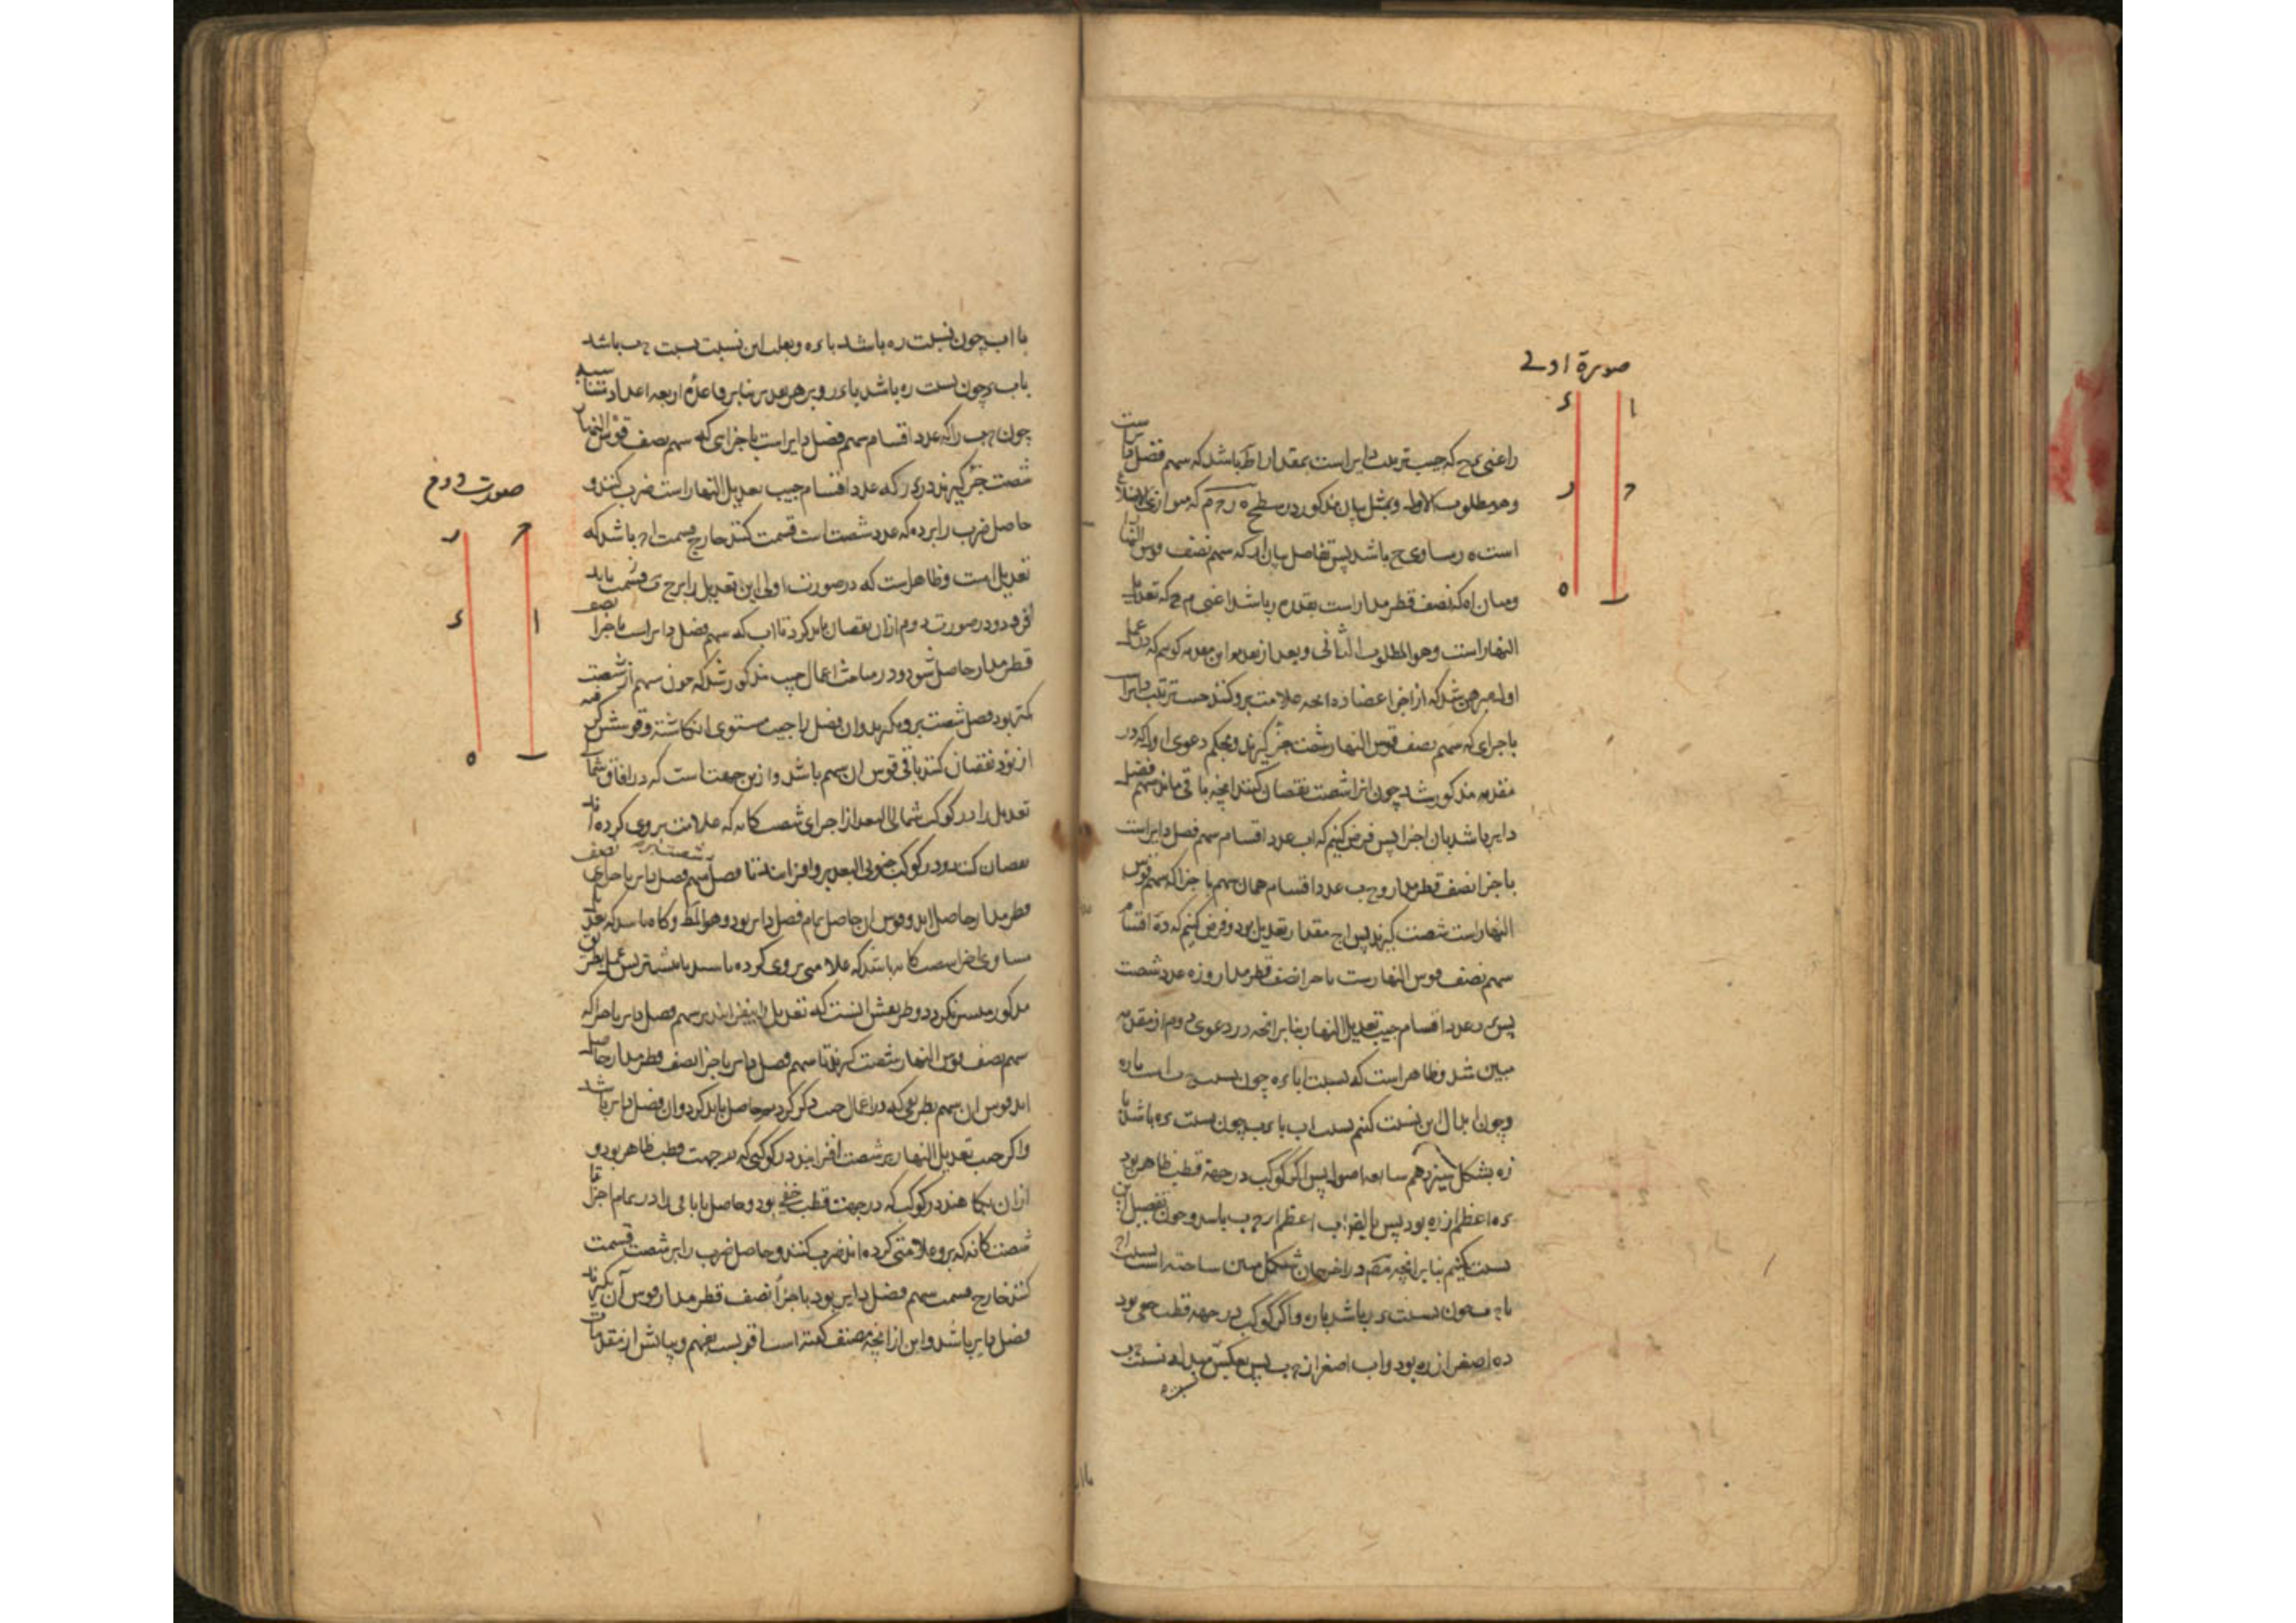 صورة اولے
ا
ء
ح
ر
ب
ه
راعنی که جیب ترتیب دایر است بمقدار اط باشد که سهم فضل دایر است
وهو مطلوب الاول و بمثل بیان مذکور در سطح ه ر ح م که متوازی الاضلاع
است ه ر مساوی ح م باشد پس تفاضل میان اه که سهم نصف قوس النهار
ومیان اه که نصف قطر مدار است بقدر ه ر باشد اعنی م ح که تعدیل
النهار است وهو المطلوب الثانی و بعد از تقدیم این مقدمه گوییم که در عمل
اول مبرهن شد که از اجزا عضاده انچه علامت برو کنند جیب ترتیب دایر است
باجزای که سهم نصف قوس النهار شصت جزء گیرند و بحکم دعوی اول که در
مقدمه مذکور شد چون انرا از شصت نقصان کنند انچه باقی ماند سهم فضل
دایر باشد بان اجزا پس فرض کنیم که اب عدد اقسام سهم فضل دایر است
باجزا نصف قطر مدار و ح ب عدد اقسام همان سهم باجزا که سهم قوس
النهار است شصت گیرند پس اح مقدار تعدیل بود و فرض کنیم که ء ه اقسام
سهم نصف قوس النهار است باجزا نصف قطر مدار و ر ه عدد شصت
پس ء ر عدد اقسام جیب تعدیل النهار بنا بر انچه در دعوی دوم از مقدمه
مبین شد و ظاهر است که نسبت اب با ء ه چون نسبت ح ب است با ر ه
وچون ابدال این نسبت کنیم نسبت اب با ح ب چون نسبت ء ه باشد با
ر ه بشکل سیزدهم سابعه اصول پس اگر کوکب در جهة قطب ظاهر بود
ء ه اعظم از ر ه بود پس بالضرورة اب اعظم از ح ب باشد و چون تفصیل این
نسبت کنیم بنا بر انچه در اخر همان شکل مبین ساخته است نسبت اح
با ح ب چون نسبت ء ر باشد با ر ه و اگر کوکب در جهة قطب خفی بود
ء ه اصغر از ر ه بود و اب اصغر از ح ب پس بعکس مبدل نسبت ح ب
با اب چون نسبت ر ه باشد با ء ه و بقلب این نسبت نسبت ح ب باشد
با ا ح چون نسبت ر ه باشد با ء ر و برهر تقدیر بنا بر قاعدهٔ اربعه اعداد متناسبه
چون ح ب را که عدد اقسام سهم فضل دایر است باجزای که سهم نصف قوس النهار
شصت جزء گیرند در ء ر که عدد اقسام جیب تعدیل النهار است ضرب کنند و
حاصل ضرب را بر ر ه که عدد شصت است قسمت کنند خارج قسمت اح باشد که
تعدیل است و ظاهر است که در صورت اولی این تعدیل را بر ح ب باید
افزود و در صورت دوم از ان نقصان باید کرد تا اب که سهم فضل دایر است باجزا نصف
قطر مدار حاصل شود و در مباحث اعمال جیب مذکور شد که چون سهم از شصت
کمتر بود فضل شصت برو بگیرند و ان فضل را جیب مستوی انکاشته و قوسش گرفته
از نود نقصان کنند باقی قوس ان سهم باشد و ازین جهت است که در افاق شمالی
تعدیل را در کوکب شمالی البعد از اجزای شصت کانه که علامت بروی کرده اند
نقصان کنند و در کوکب جنوبی البعد برو افزایند تا فضل شصت بر سهم فضل دایر باجزای نصف
قطر مدار حاصل اید و قوس ان حاصل تمام فضل دایر بود و هو المط و گاه باشد که تعدیل
مساوی اجزای شصت کانه باشد که علامتی بروی کرده باشند یا بیشتر پس عمل بطریق
مذکور میسر نگردد و طریقش انست که تعدیل را بیفزایند بر سهم فضل دایر باجزا که
سهم نصف قوس النهار شصت گیرند تا سهم فضل دایر باجزا نصف قطر مدار حاصل
اید قوس ان سهم بطریقی که در اعمال جیب ذکر کرد حاصل باید کرد و ان فضل دایر باشد
و اگر جیب تعدیل النهار بر شصت افزایند در کوکبی که در جهت قطب ظاهر بود و
از ان بکاهند در کوکب که در جهت قطب خفی بود و حاصل یا باقی را در تمام اجزا
شصت کانه که برو علامتی کرده اند ضرب کنند و حاصل ضرب را بر شصت قسمت
کنند خارج قسمت سهم فضل دایر بود باجزا نصف قطر مدار قوس آن بگیرند
فضل دایر باشد و این از انچه مصنف گفته است اقرب است بفهم و بیانش از مقدمات
صورت دوم
ح
ر
ا
ء
ب
ه